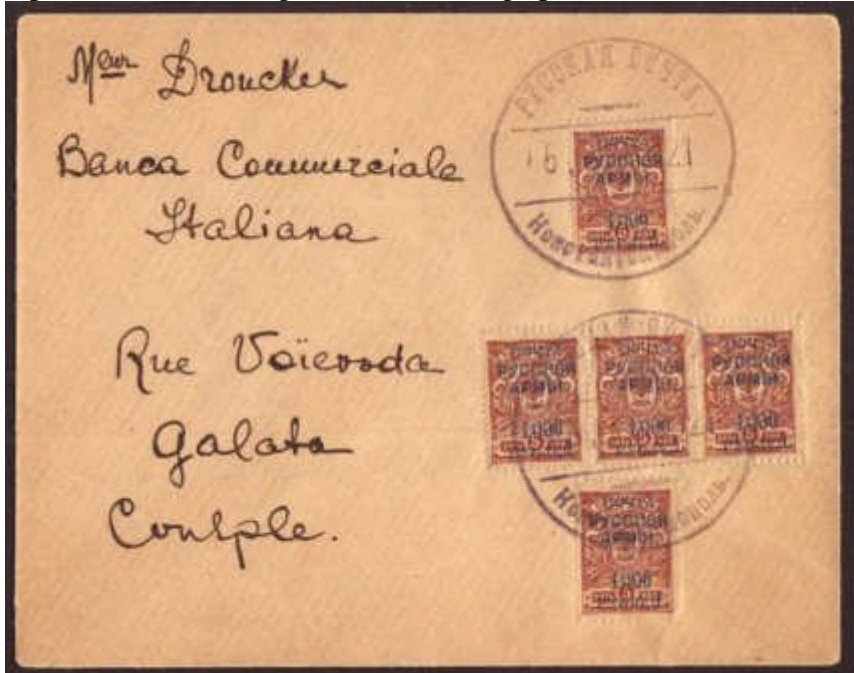 Mᵉᵘʳ Droucker
Banca Commerciale
Italiana
Rue Voïevoda
Galata
Contple.
РУССКАЯ ПОЧТА
21
ПОЧТА
РУССКОЙ
АРМІИ
1.000
Константинополь.
ПОЧТА
РУССКОЙ
АРМІИ
1.000
ПОЧТА
РУССКОЙ
АРМІИ
1.000
ПОЧТА
РУССКОЙ
АРМІИ
1.000
ПОЧТА
РУССКОЙ
АРМІИ
1.000